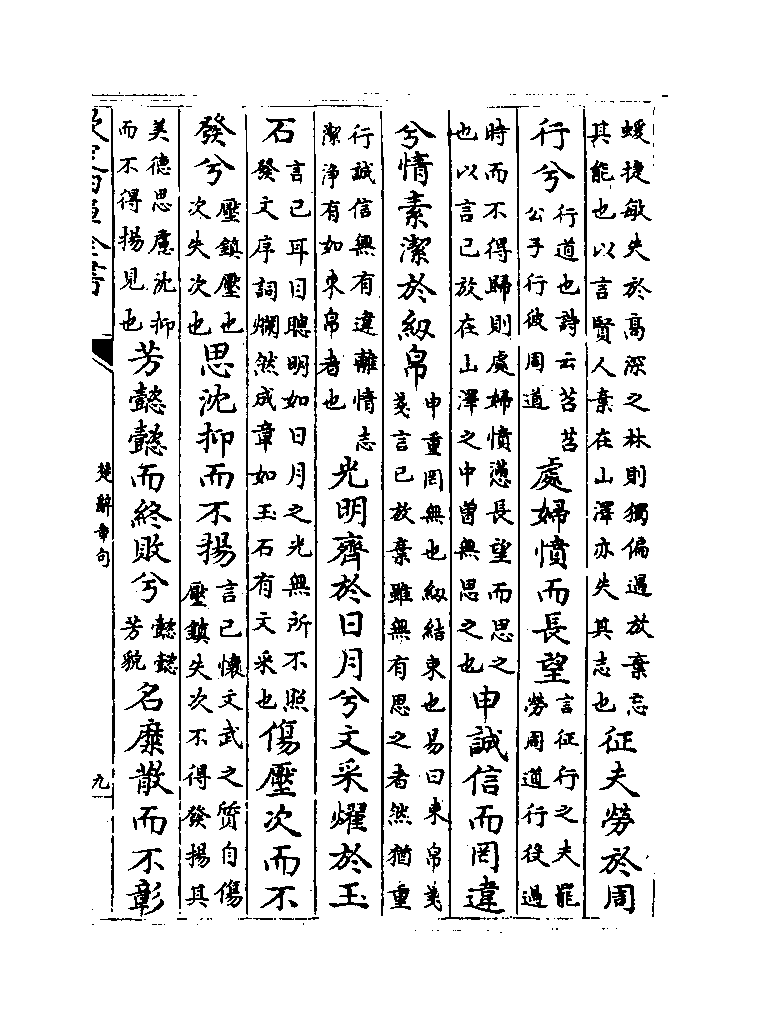 蝯捷敏失於高深之林則獨偏過放棄忘
其能也以言賢人棄在山澤亦失其志也
征夫勞於周
行兮
行道也詩云苕苕
公子行彼周道
處婦憤而長望
言征行之夫罷
勞周道行役過
時而不得歸則處婦憤懣長望而思之
也以言已放在山澤之中曽無思之也
申誠信而罔違
兮情素潔於紉帛
申重罔無也紉結束也易曰束帛戔
戔言已放棄雖無有思之者然猶重
行誠信無有違離情志
潔淨有如束帛者也
光明齊於日月兮文采燿於玉
石
言已耳目聰明如日月之光無所不照
發文序詞爛然成章如玉石有文采也
傷壓次而不
發兮
壓鎮壓也
次失次也
思沈抑而不揚
言已懷文武之質自傷
壓鎮失次不得發揚其
美德思慮沈抑
而不得揚見也
芳懿懿而終敗兮
懿懿
芳貌
名糜散而不彰
欽定四庫全書
楚辭章句
九